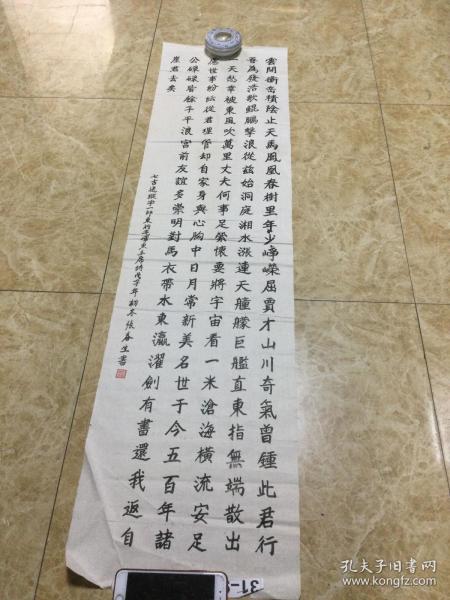 雲開衡岳積陰止天馬鳳凰春樹里年少崢嶸屈賈才山川奇氣曾鍾此君行
吾為發浩歌鯤鵬擊浪從茲始洞庭湘水漲連天艟艨巨艦直東指無端散出
一天愁幸被東風吹萬里丈夫何事足縈懷要將宇宙看一米滄海橫流安足
慮世事紛紜從君理管却自家身與心胸中日月常新美名世于今五百年諸
公碌碌皆餘子平浪宮前友誼多崇明對馬衣帶水東瀛濯劍有書還我返自
崖君去矣
七古送縱宇一郎東行毛澤東主席詩戊子年初冬張春生書
31-
孔夫子旧书网
www.kongfz.com